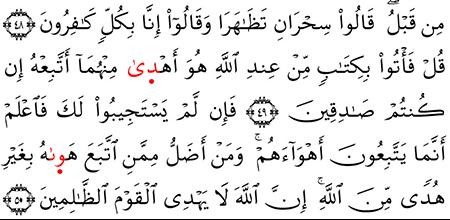 مِن قَبْلُ ۖ قَالُوا۟ سِحْرَانِ تَظَـٰهَرَا وَقَالُوٓا۟ إِنَّا بِكُلٍّ كَـٰفِرُونَ ﴿٤٨﴾
قُلْ فَأْتُوا۟ بِكِتَـٰبٍ مِّنْ عِندِ ٱللَّهِ هُوَ أَهْدِىٰ مِنْهُمَآ أَتَّبِعْهُ إِن
كُنتُمْ صَـٰدِقِينَ ﴿٤٩﴾ فَإِن لَّمْ يَسْتَجِيبُوا۟ لَكَ فَٱعْلَمْ
أَنَّمَا يَتَّبِعُونَ أَهْوَآءَهُمْ ۚ وَمَنْ أَضَلُّ مِمَّنِ ٱتَّبَعَ هَوِىٰهُ بِغَيْرِ
هُدًى مِّنَ ٱللَّهِ ۚ إِنَّ ٱللَّهَ لَا يَهْدِى ٱلْقَوْمَ ٱلظَّـٰلِمِينَ ﴿٥٠﴾